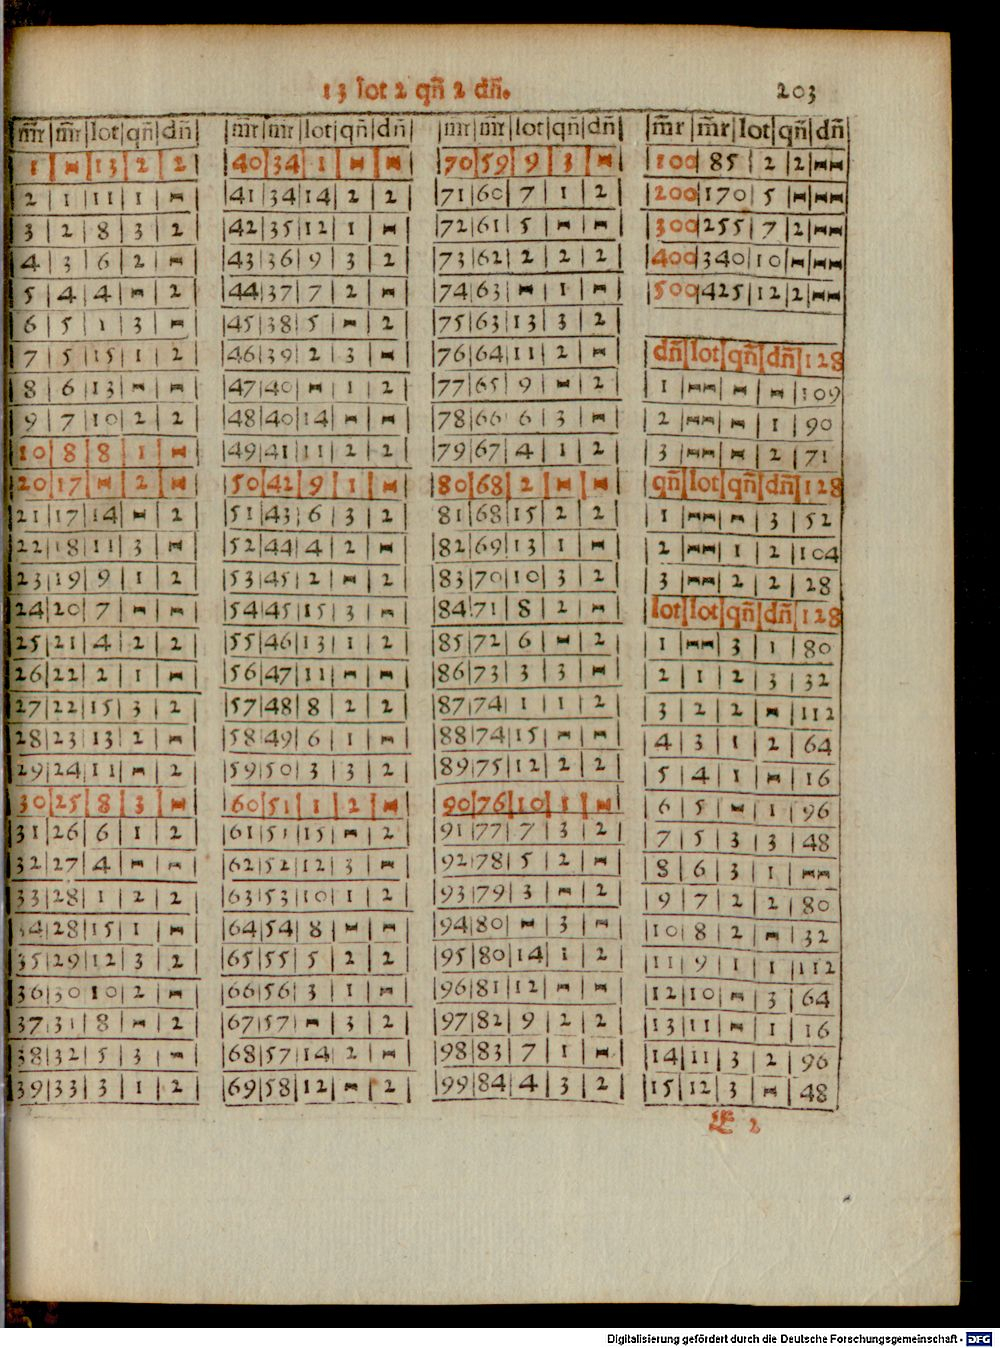 13 lot 2 qñ 2 dñ.
203
m̃r | m̃r | lot | qñ | dñ
1 | - | 13 | 2 | 2
2 | 1 | 11 | 1 | -
3 | 2 | 8 | 3 | 2
4 | 3 | 6 | 2 | -
5 | 4 | 4 | - | 2
6 | 5 | 1 | 3 | -
7 | 5 | 15 | 1 | 2
8 | 6 | 13 | - | -
9 | 7 | 10 | 2 | 2
10 | 8 | 8 | 1 | -
20 | 17 | - | 2 | -
21 | 17 | 14 | - | 2
22 | 18 | 11 | 3 | -
23 | 19 | 9 | 1 | 2
24 | 20 | 7 | - | -
25 | 21 | 4 | 2 | 2
26 | 22 | 2 | 1 | -
27 | 22 | 15 | 3 | 2
28 | 23 | 13 | 2 | -
29 | 24 | 11 | - | 2
30 | 25 | 8 | 3 | -
31 | 26 | 6 | 1 | 2
32 | 27 | 4 | - | -
33 | 28 | 1 | 2 | 2
34 | 28 | 15 | 1 | -
35 | 29 | 12 | 3 | 2
36 | 30 | 10 | 2 | -
37 | 31 | 8 | - | 2
38 | 32 | 5 | 3 | -
39 | 33 | 3 | 1 | 2
m̃r | m̃r | lot | qñ | dñ
40 | 34 | 1 | - | -
41 | 34 | 14 | 2 | 2
42 | 35 | 12 | 1 | -
43 | 36 | 9 | 3 | 2
44 | 37 | 7 | 2 | -
45 | 38 | 5 | - | 2
46 | 39 | 2 | 3 | -
47 | 40 | - | 1 | 2
48 | 40 | 14 | - | -
49 | 41 | 11 | 2 | 2
50 | 42 | 9 | 1 | -
51 | 43 | 6 | 3 | 2
52 | 44 | 4 | 2 | -
53 | 45 | 2 | - | 2
54 | 45 | 15 | 3 | -
55 | 46 | 13 | 1 | 2
56 | 47 | 11 | - | -
57 | 48 | 8 | 2 | 2
58 | 49 | 6 | 1 | -
59 | 50 | 3 | 3 | 2
60 | 51 | 1 | 2 | -
61 | 51 | 15 | - | 2
62 | 52 | 12 | 3 | -
63 | 53 | 10 | 1 | 2
64 | 54 | 8 | - | -
65 | 55 | 5 | 2 | 2
66 | 56 | 3 | 1 | -
67 | 57 | - | 3 | 2
68 | 57 | 14 | 2 | -
69 | 58 | 12 | - | 2
m̃r | m̃r | lot | qñ | dñ
70 | 59 | 9 | 3 | -
71 | 60 | 7 | 1 | 2
72 | 61 | 5 | - | -
73 | 62 | 2 | 2 | 2
74 | 63 | - | 1 | -
75 | 63 | 13 | 3 | 2
76 | 64 | 11 | 2 | -
77 | 65 | 9 | - | 2
78 | 66 | 6 | 3 | -
79 | 67 | 4 | 1 | 2
80 | 68 | 2 | - | -
81 | 68 | 15 | 2 | 2
82 | 69 | 13 | 1 | -
83 | 70 | 10 | 3 | 2
84 | 71 | 8 | 2 | -
85 | 72 | 6 | - | 2
86 | 73 | 3 | 3 | -
87 | 74 | 1 | 1 | 2
88 | 74 | 15 | - | -
89 | 75 | 12 | 2 | 2
90 | 76 | 10 | 1 | -
91 | 77 | 7 | 3 | 2
92 | 78 | 5 | 2 | -
93 | 79 | 3 | - | 2
94 | 80 | - | 3 | -
95 | 80 | 14 | 1 | 2
96 | 81 | 12 | - | -
97 | 82 | 9 | 2 | 2
98 | 83 | 7 | 1 | -
99 | 84 | 4 | 3 | 2
m̃r | m̃r | lot | qñ | dñ
100 | 85 | 2 | 2 | --
200 | 170 | 5 | - | --
300 | 255 | 7 | 2 | --
400 | 340 | 10 | - | --
500 | 425 | 12 | 2 | --
dñ | lot | qñ | dñ | 128
1 | -- | - | - | 109
2 | -- | - | 1 | 90
3 | -- | - | 2 | 71
qñ | lot | qñ | dñ | 128
1 | -- | - | 3 | 52
2 | -- | 1 | 2 | 104
3 | -- | 2 | 2 | 28
lot | lot | qñ | dñ | 128
1 | -- | 3 | 1 | 80
2 | 1 | 2 | 3 | 32
3 | 2 | 2 | - | 112
4 | 3 | 1 | 2 | 64
5 | 4 | 1 | - | 16
6 | 5 | - | 1 | 96
7 | 5 | 3 | 3 | 48
8 | 6 | 3 | 1 | --
9 | 7 | 2 | 2 | 80
10 | 8 | 2 | - | 32
11 | 9 | 1 | 1 | 112
12 | 10 | - | 3 | 64
13 | 11 | - | 1 | 16
14 | 11 | 3 | 2 | 96
15 | 12 | 3 | - | 48
2
Digitalisierung gefördert durch die Deutsche Forschungsgemeinschaft - DFG